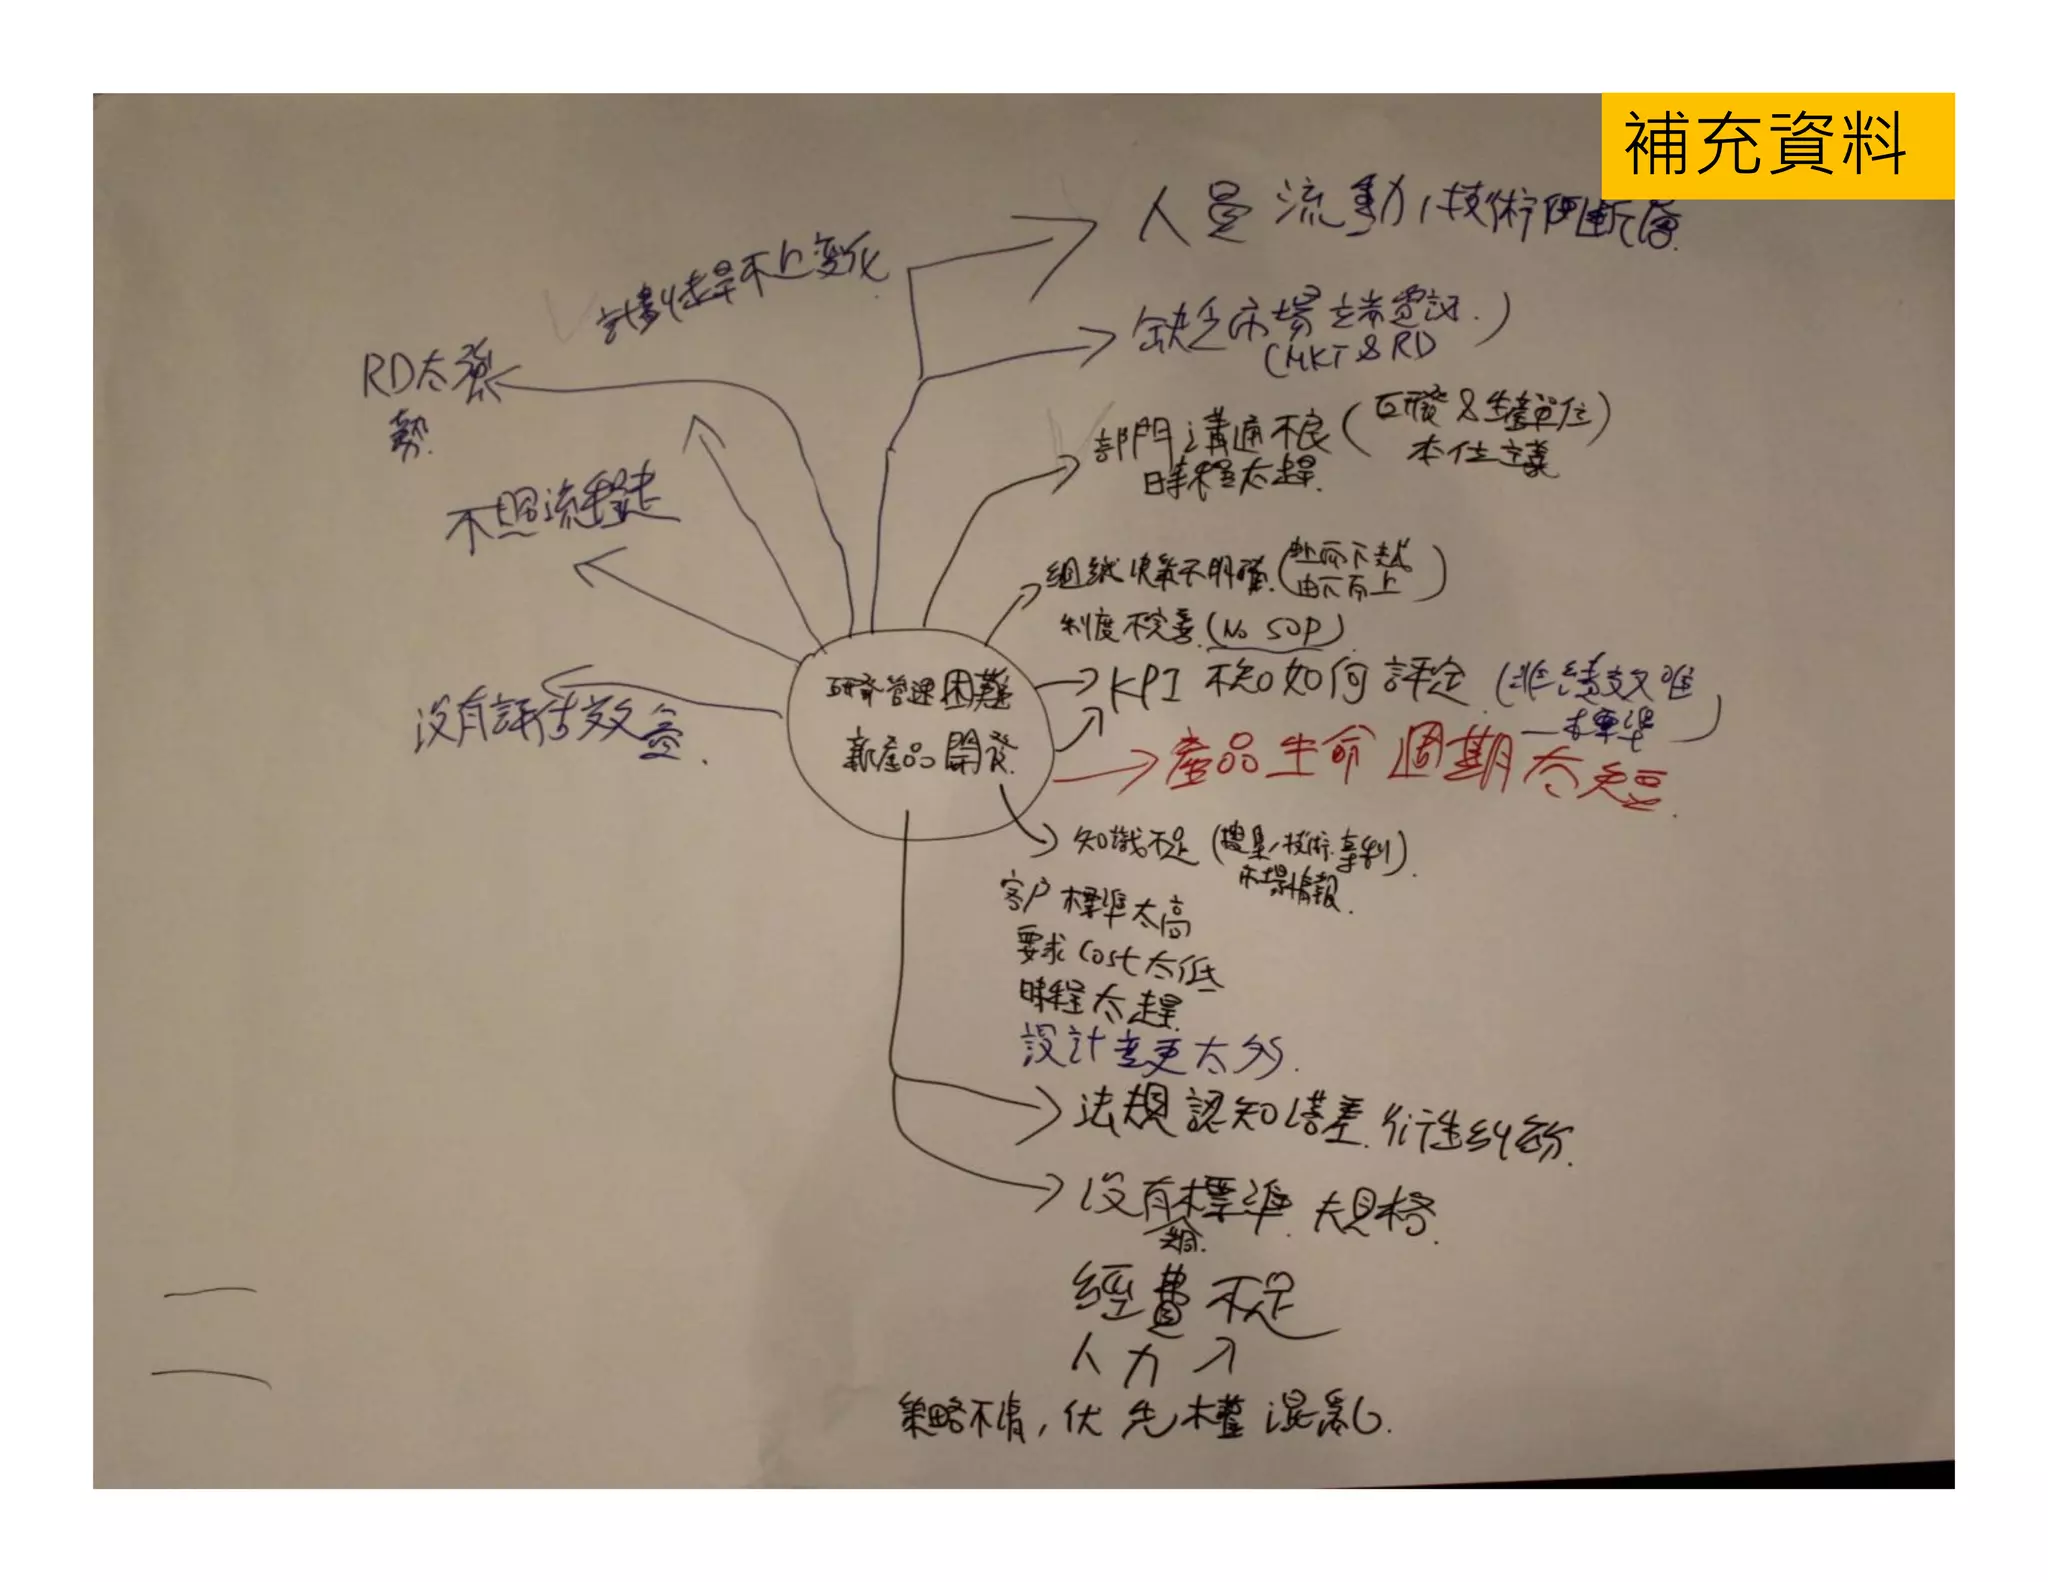 補充資料
人員流動,技術斷層.
計劃趕不上變化
缺乏市場
(MKT & RD)
RD太強
勢.
部門溝通不良(研發&生產單位)
本位主義
時程太趕.
不照流程走
組織決策不明確.
由下而上
制度不完善(No SOP)
KPI 不知如何評定
標準
研發管理困難
新產品開發.
沒有評估效益.
產品生命週期太短.
知識不足(搜集/技術.專利).
市場情報.
客戶標準太高
要求Cost太低
時程太趕.
設計變更太多.
法規認知誤差.衍生糾紛.
沒有標準 規格.
經費不足
人力
策略不清,優先權混亂.